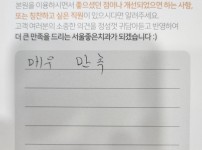 본원을 이용하시면서 좋으셨던 점이나 개선되었으면 하는 사항,
또는 칭찬하고 싶은 직원이 있으시다면 알려주세요.
고객 여러분의 소중한 의견을 항상 귀담아듣고 반영하여
더 큰 만족을 드리는 서울좋은치과가 되겠습니다 :)
매우 만족